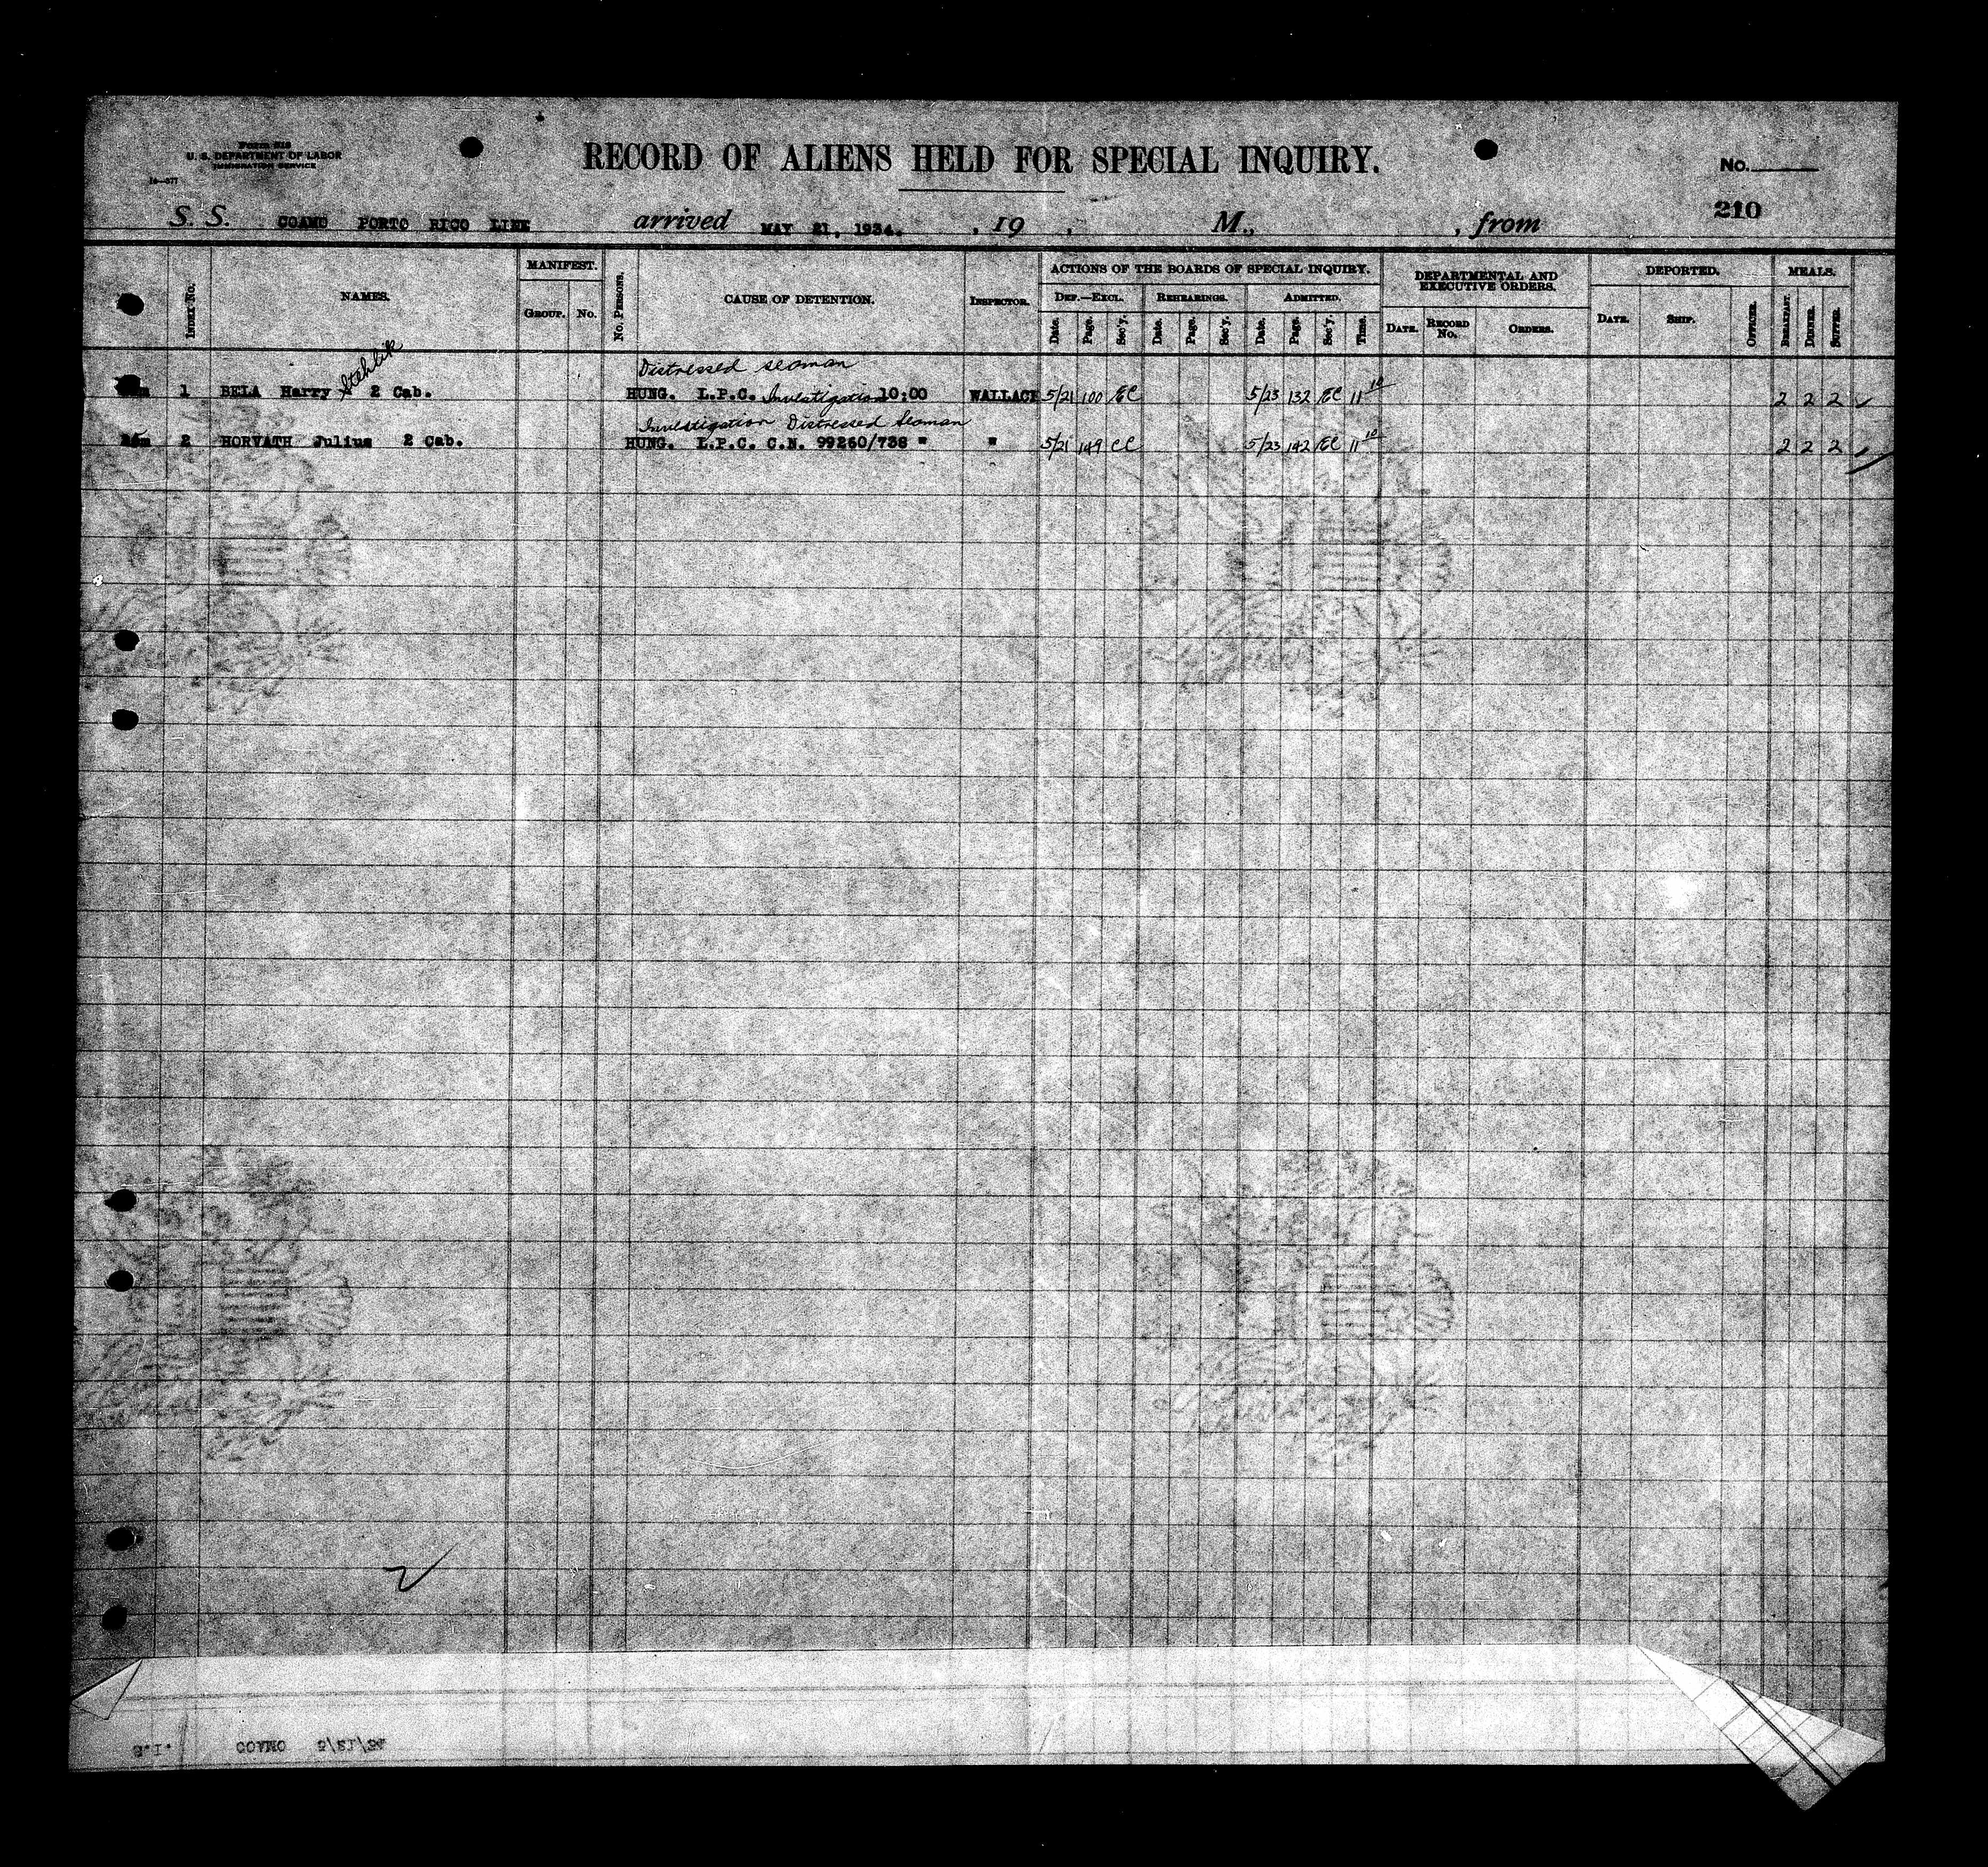 Form 518
U. S. DEPARTMENT OF LABOR
IMMIGRATION SERVICE
RECORD OF ALIENS HELD FOR SPECIAL INQUIRY.
No.
210
S. S. COAMO PORTO RICO LINE arrived MAY 21, 1934. , 19 , M., , from
Index No. NAMES. MANIFEST. Group. No. No. Persons. CAUSE OF DETENTION. Inspector. ACTIONS OF THE BOARDS OF SPECIAL INQUIRY. DEPARTMENTAL AND EXECUTIVE ORDERS. DEPORTED. MEALS.
Def.—Excl. Rehearings. Admitted.
Date. Page. Sec'y. Date. Page. Sec'y. Date. Page. Sec'y. Time. Date. Record No. Orders. Date. Ship. Officer. Breakfast. Dinner. Supper.
Stehlik
Distressed seaman
1 BELA Harry 2 Cab. HUNG. L.P.C. Investigation 10:00 WALLACE 5/21 100 EC 5/23 132 EC 11 10 2 2 2
Investigation Distressed Seaman
2 HORVATH Julius 2 Cab. HUNG. L.P.C. C.N. 99260/738 " " 5/21 149 CC 5/23 142 EC 11 10 2 2 2
S.I. COAMO 5/21/34